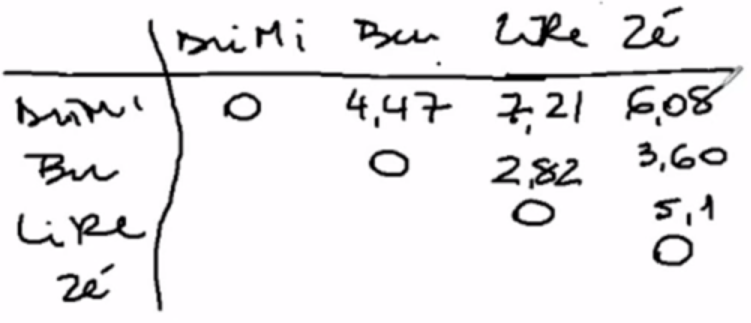 DriMi Bru LiRe Zé
DriMi 0 4,47 7,21 6,08
Bru 0 2,82 3,60
LiRe 0 5,1
Zé 0